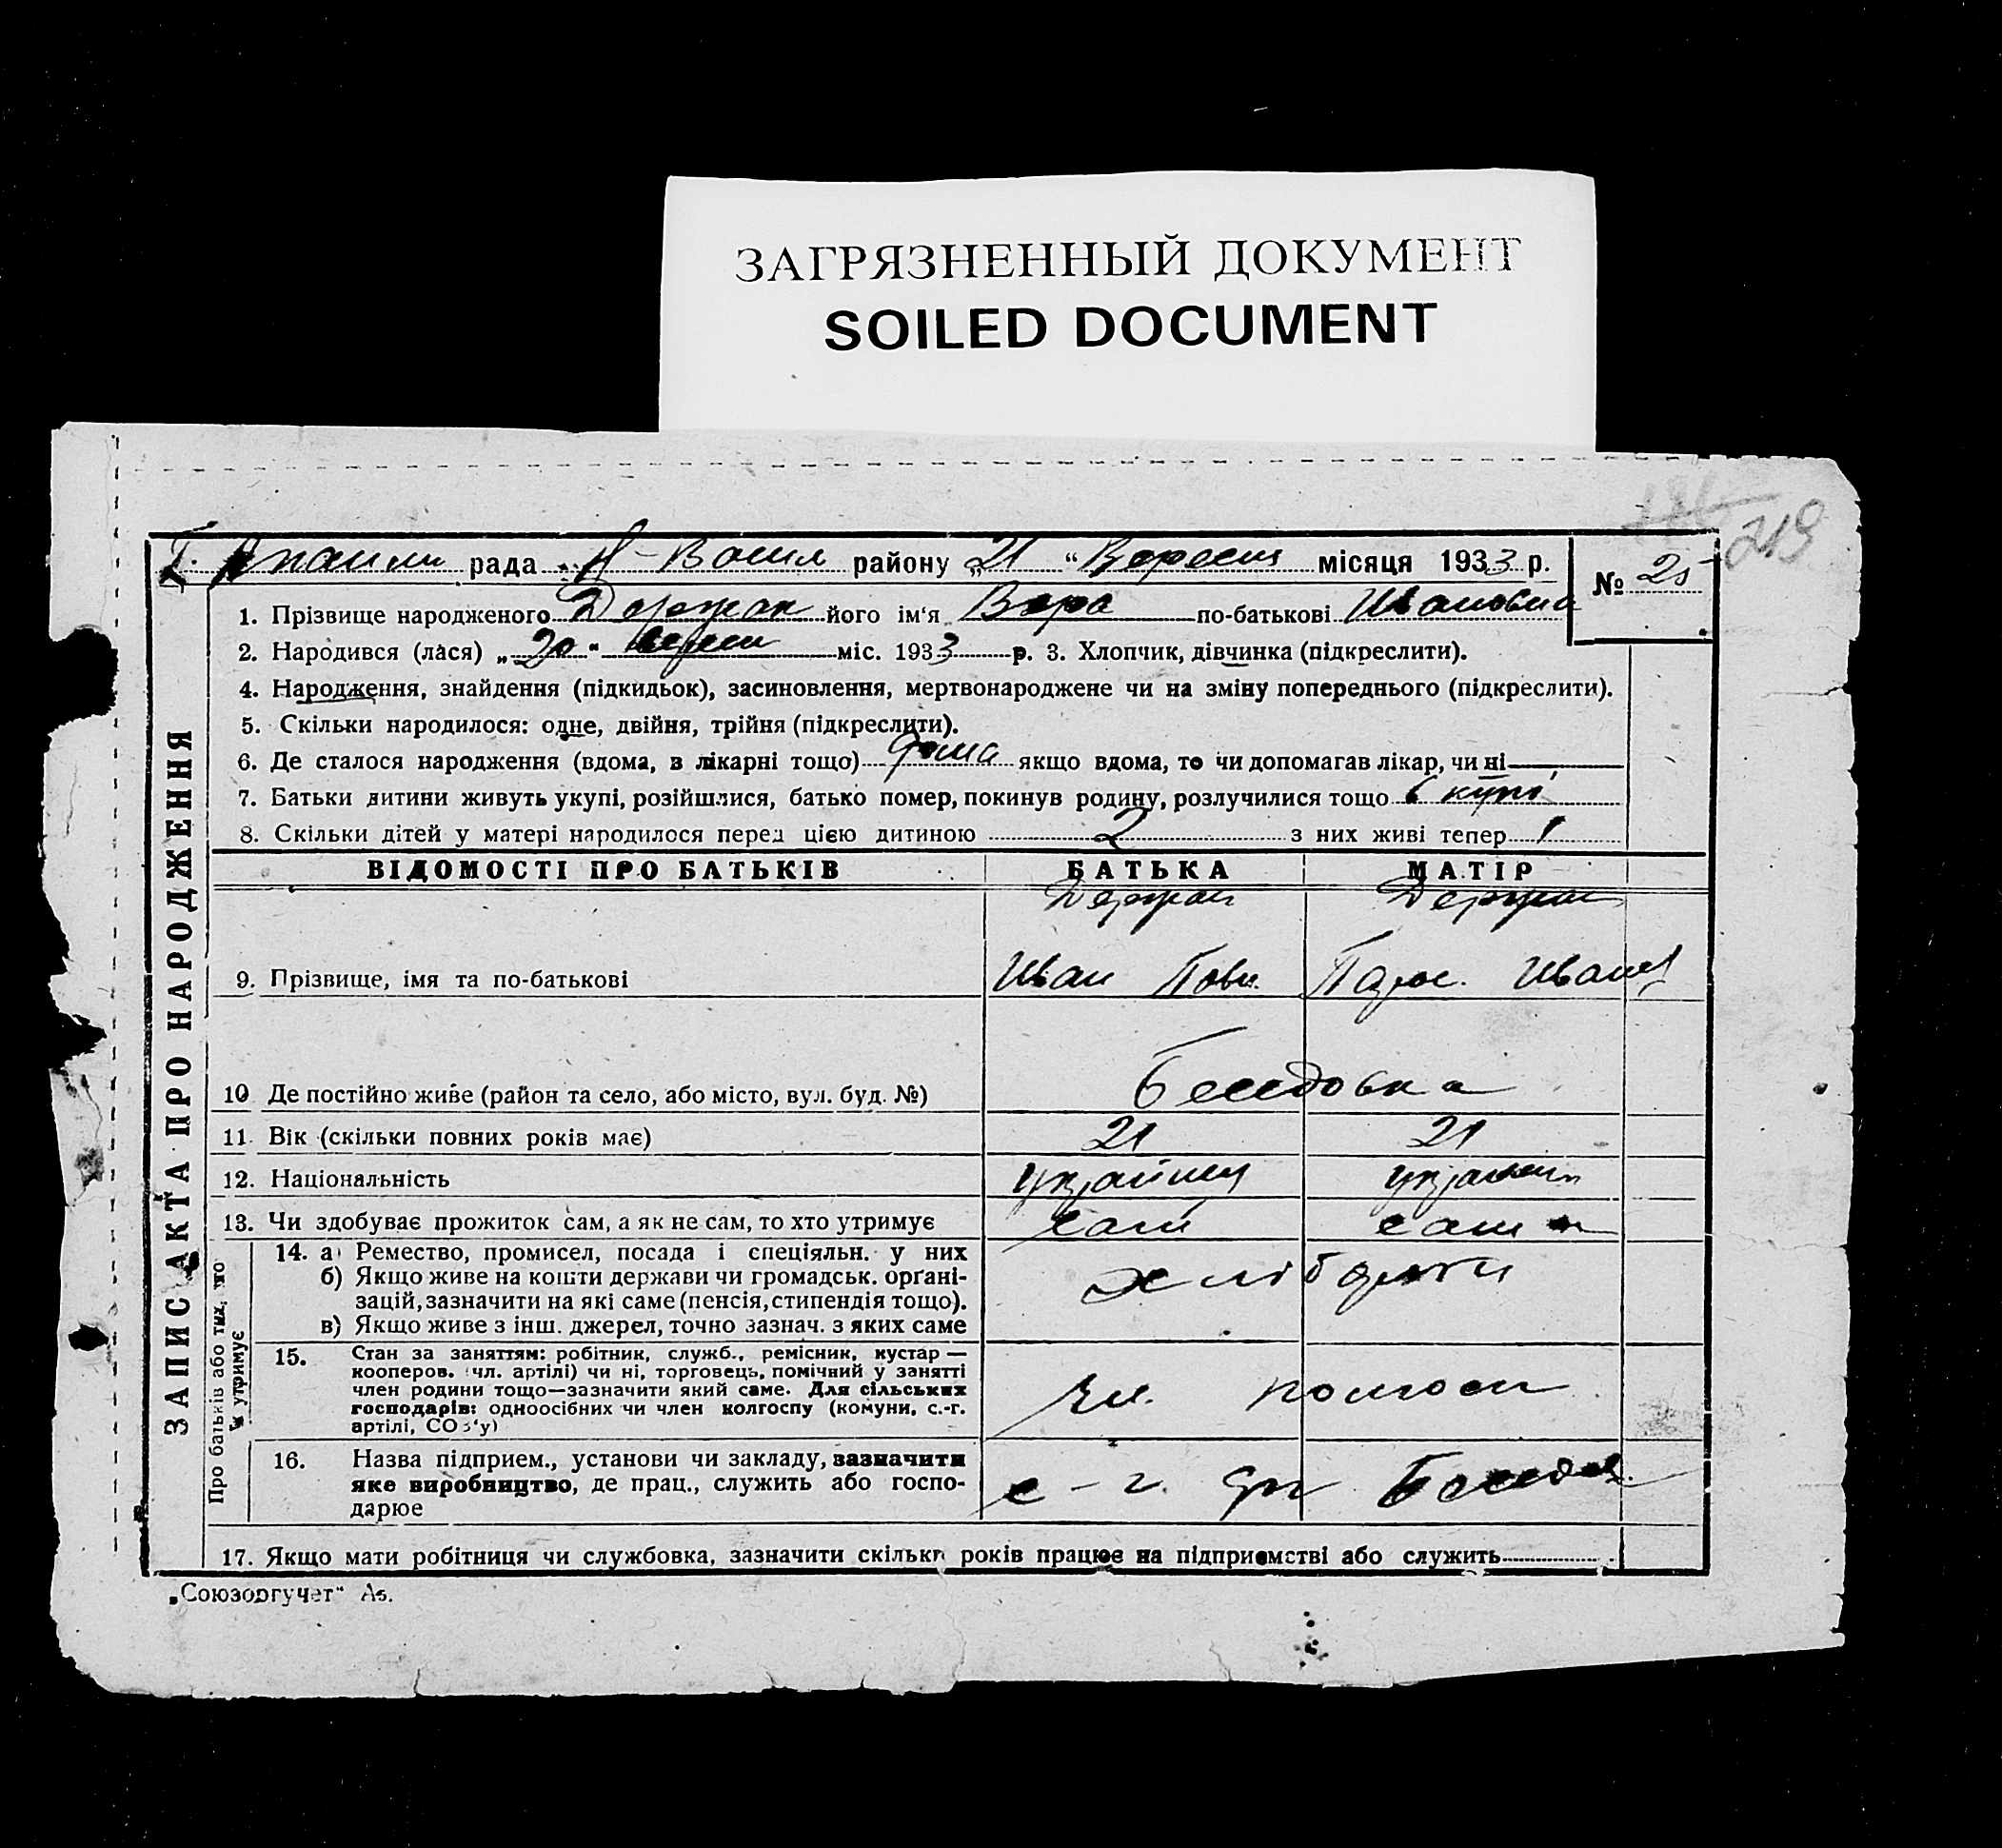 ЗАГРЯЗНЕННЫЙ ДОКУМЕНТ
SOILED DOCUMENT
219
рада Н-Васил району „21“ Вересня місяця 1933 р. № 25
1. Прізвище народженого Держак його ім'я Вера по-батькові Ивановна
2. Народився (лася) „20“ вересн міс. 1933 р. 3. Хлопчик, дівчинка (підкреслити).
4. Народження, знайдення (підкидьок), засиновлення, мертвонароджене чи на зміну попереднього (підкреслити).
5. Скільки народилося: одне, двійня, трійня (підкреслити).
6. Де сталося народження (вдома, в лікарні тощо) дома якщо вдома, то чи допомагав лікар, чи ні
7. Батьки дитини живуть укупі, розійшлися, батько помер, покинув родину, розлучилися тощо вкупі
8. Скільки дітей у матері народилося перед цією дитиною 2 з них живі тепер 1
ЗАПИС АКТА ПРО НАРОДЖЕННЯ
ВІДОМОСТІ ПРО БАТЬКІВ БАТЬКА МАТІР
Держак Держак
9. Прізвище, імя та по-батькові Иван Павл. Парас. Иванов
10 Де постійно живе (район та село, або місто, вул. буд. №) Беседовка
11. Вік (скільки повних років має) 21 21
12. Національність українец україн
13. Чи здобуває прожиток сам, а як не сам, то хто утримує сам сама
Про батьків або тих, хто їх утримує
14. а) Ремество, промисел, посада і спеціяльн. у них
б) Якщо живе на кошти держави чи громадськ. орґані-
зацій, зазначити на які саме (пенсія, стипендія тощо).
в) Якщо живе з інш. джерел, точно зазнач. з яких саме
хлібороби
15. Стан за заняттям: робітник, служб., ремісник, кустар —
кооперов. (чл. артілі) чи ні, торговець, помічний у занятті
член родини тощо—зазначити який саме. Для сільських
господарів: одноосібних чи член колгоспу (комуни, с.-г.
артілі, СОЗ'у)
чл. колгосп
16. Назва підприєм., установи чи закладу, зазначити
яке виробництво, де прац., служить або госпо-
дарює
с-г. арт Беседов.
17. Якщо мати робітниця чи службовка, зазначити скільки років працює на підприємстві або служить
„Союзоргучет“ Аз.